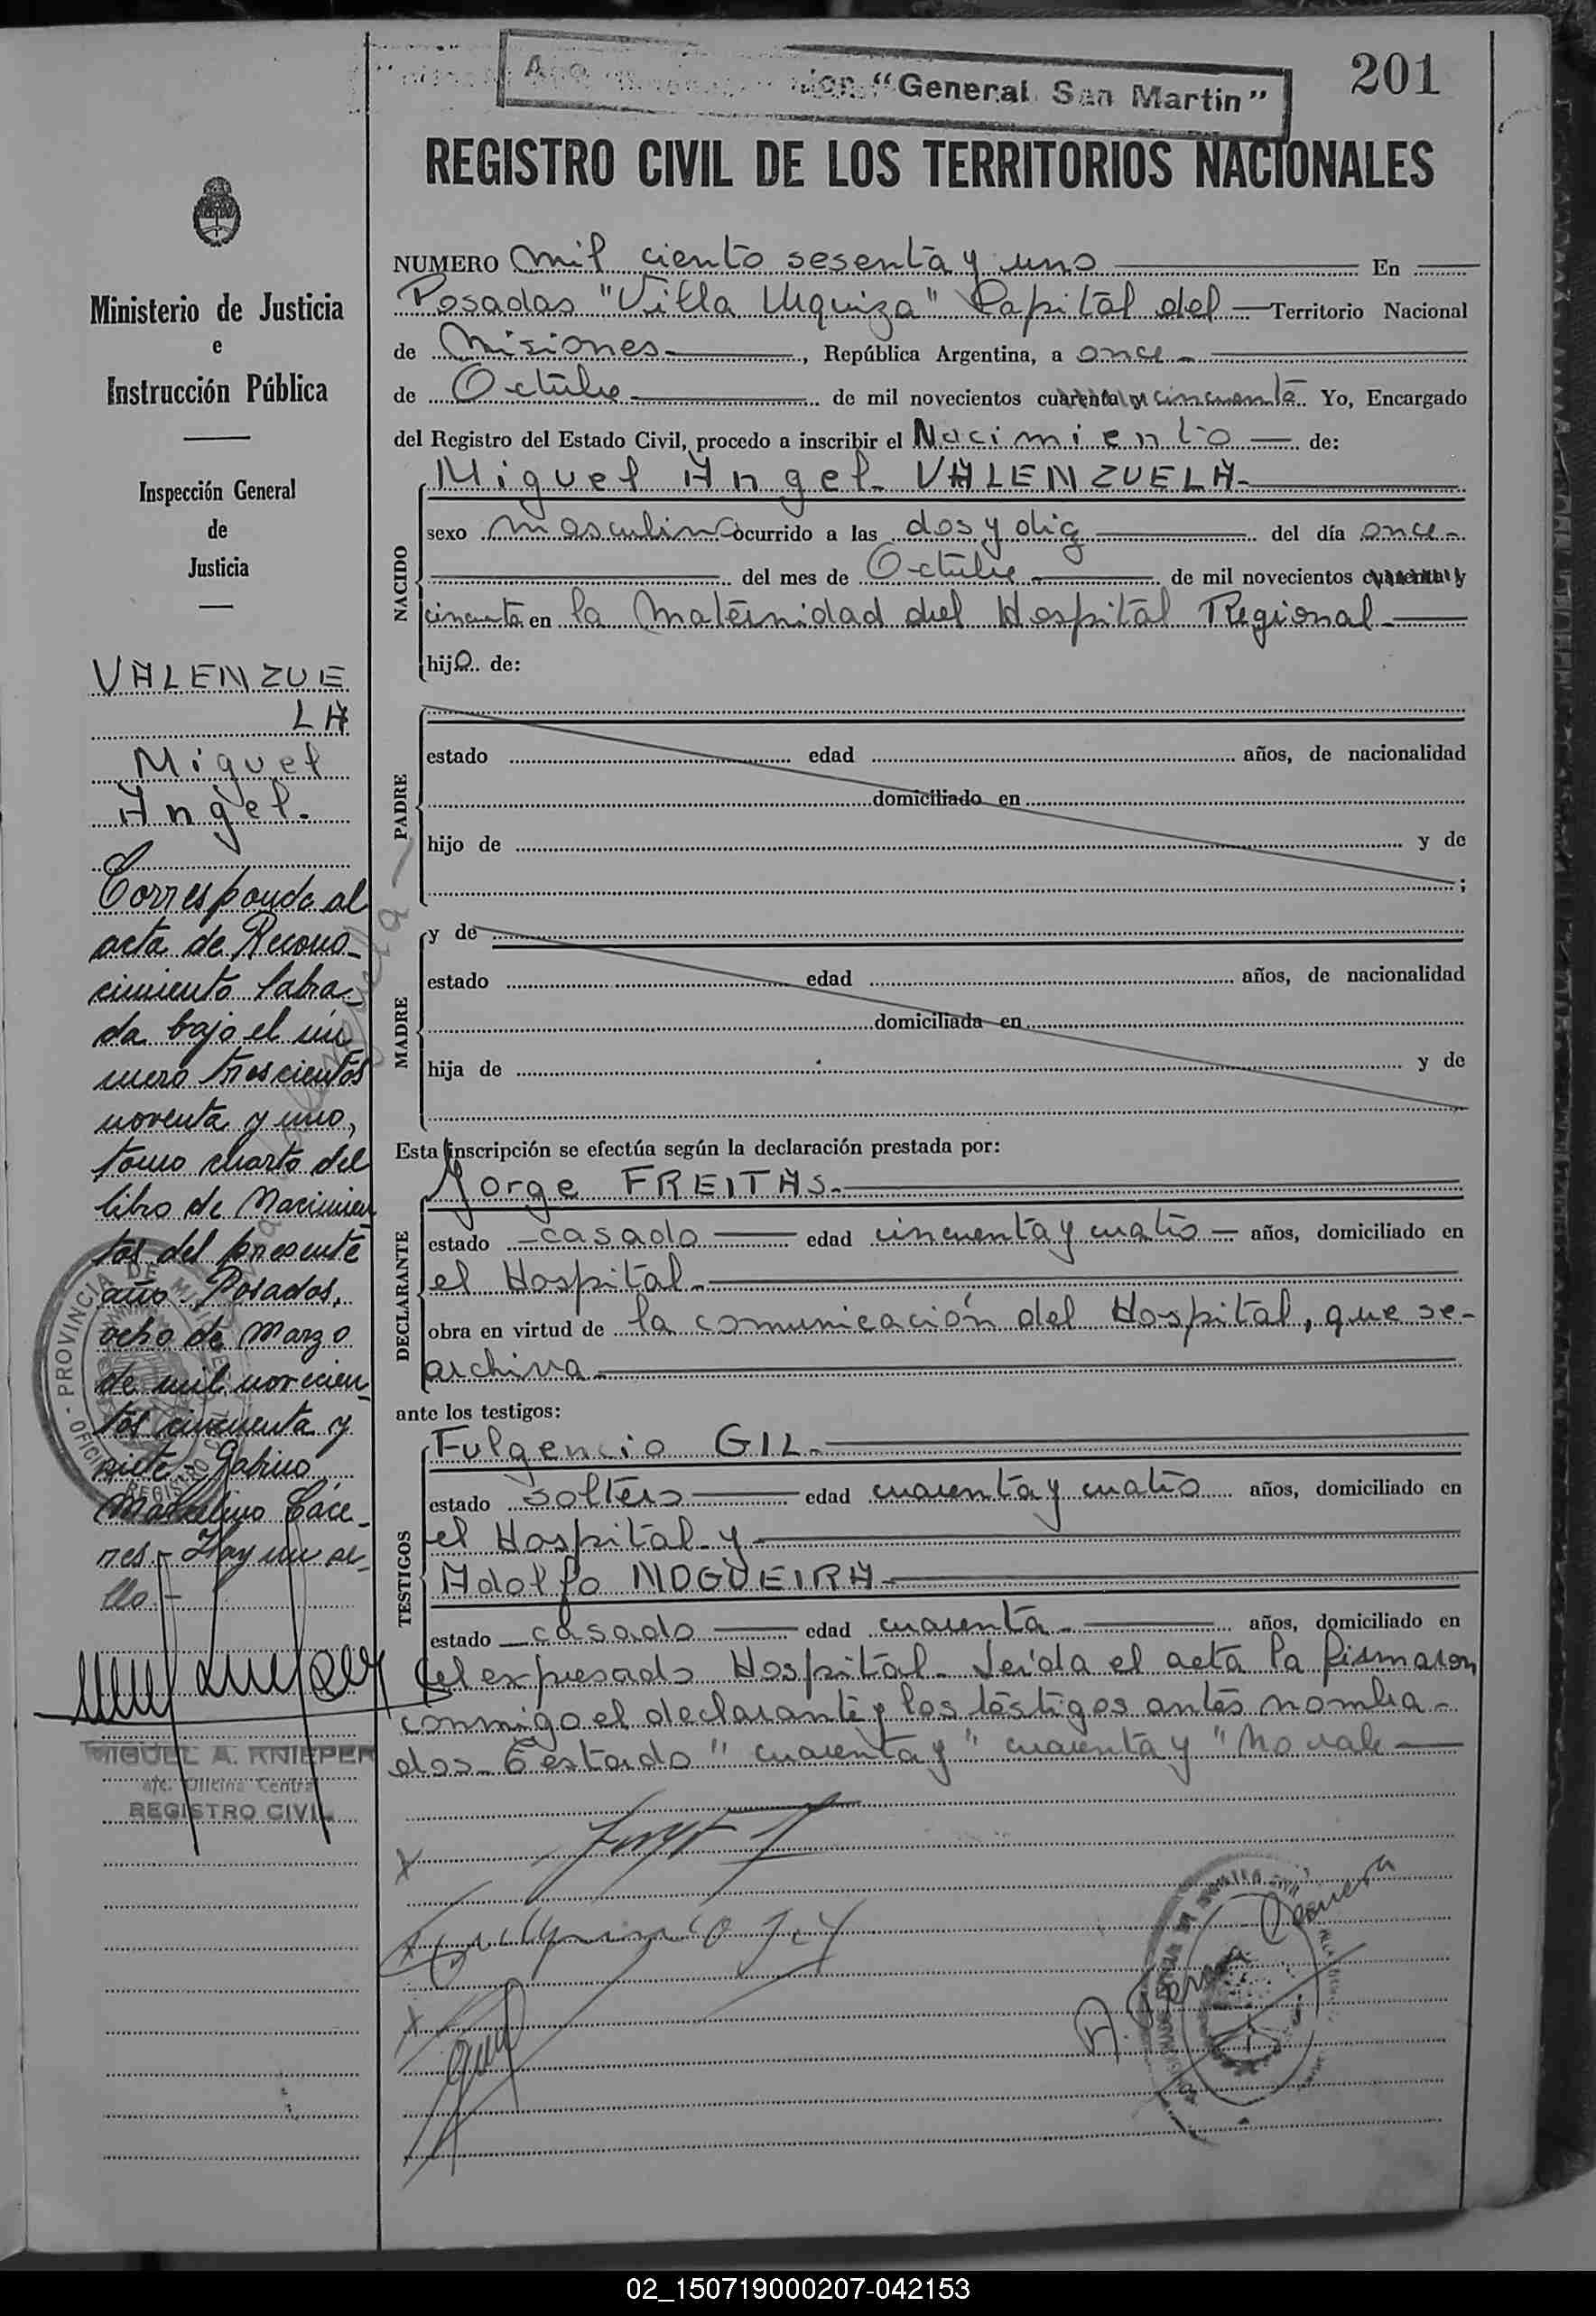 "General San Martin"
201
REGISTRO CIVIL DE LOS TERRITORIOS NACIONALES
Ministerio de Justicia
e
Instrucción Pública
Inspección General
de
Justicia
VALENZUE
LA
Miguel
Angel.
Corresponde al
acta de Recono-
cimiento labra-
da bajo el nú-
mero trescientos
noventa y uno,
tomo cuarto del
libro de Nacimien-
tos del presente
año. Posadas,
ocho de Marzo
de mil novecien-
tos cincuenta y
siete - Gabino
Marcelino Cáce-
res - Hay un se-
llo -
PROVINCIA DE MISIONES
REGISTRO CIVIL
MIGUEL A. KNIEPER
a/c. Oficina Central
REGISTRO CIVIL
NUMERO mil ciento sesenta y uno En
Posadas "Villa Urquiza" Capital del Territorio Nacional
de Misiones , República Argentina, a once
de Octubre de mil novecientos cuarenta y cincuenta Yo, Encargado
del Registro del Estado Civil, procedo a inscribir el Nacimiento de:
NACIDO
Miguel Angel VALENZUELA
sexo masculino ocurrido a las dos y diez del día once
del mes de Octubre de mil novecientos cuarenta y
cincuenta en la Maternidad del Hospital Regional
hijo de:
PADRE
estado edad años, de nacionalidad
domiciliado en
hijo de y de
;
MADRE
y de
estado edad años, de nacionalidad
domiciliada en
hija de y de
Esta inscripción se efectúa según la declaración prestada por:
DECLARANTE
Jorge FREITAS
estado casado edad cincuenta y cuatro años, domiciliado en
el Hospital
obra en virtud de la comunicación del Hospital, que se
archiva
ante los testigos:
TESTIGOS
Fulgencio GIL
estado soltero edad cuarenta y cuatro años, domiciliado en
el Hospital y
Adolfo NOGUEIRA
estado casado edad cuarenta años, domiciliado en
el expresado Hospital. Leída el acta la firmaron
conmigo el declarante y los testigos antes nombra-
dos. Testado "cuarenta y" cuarenta y "No vale
Fulgencio Gil
02_150719000207-042153